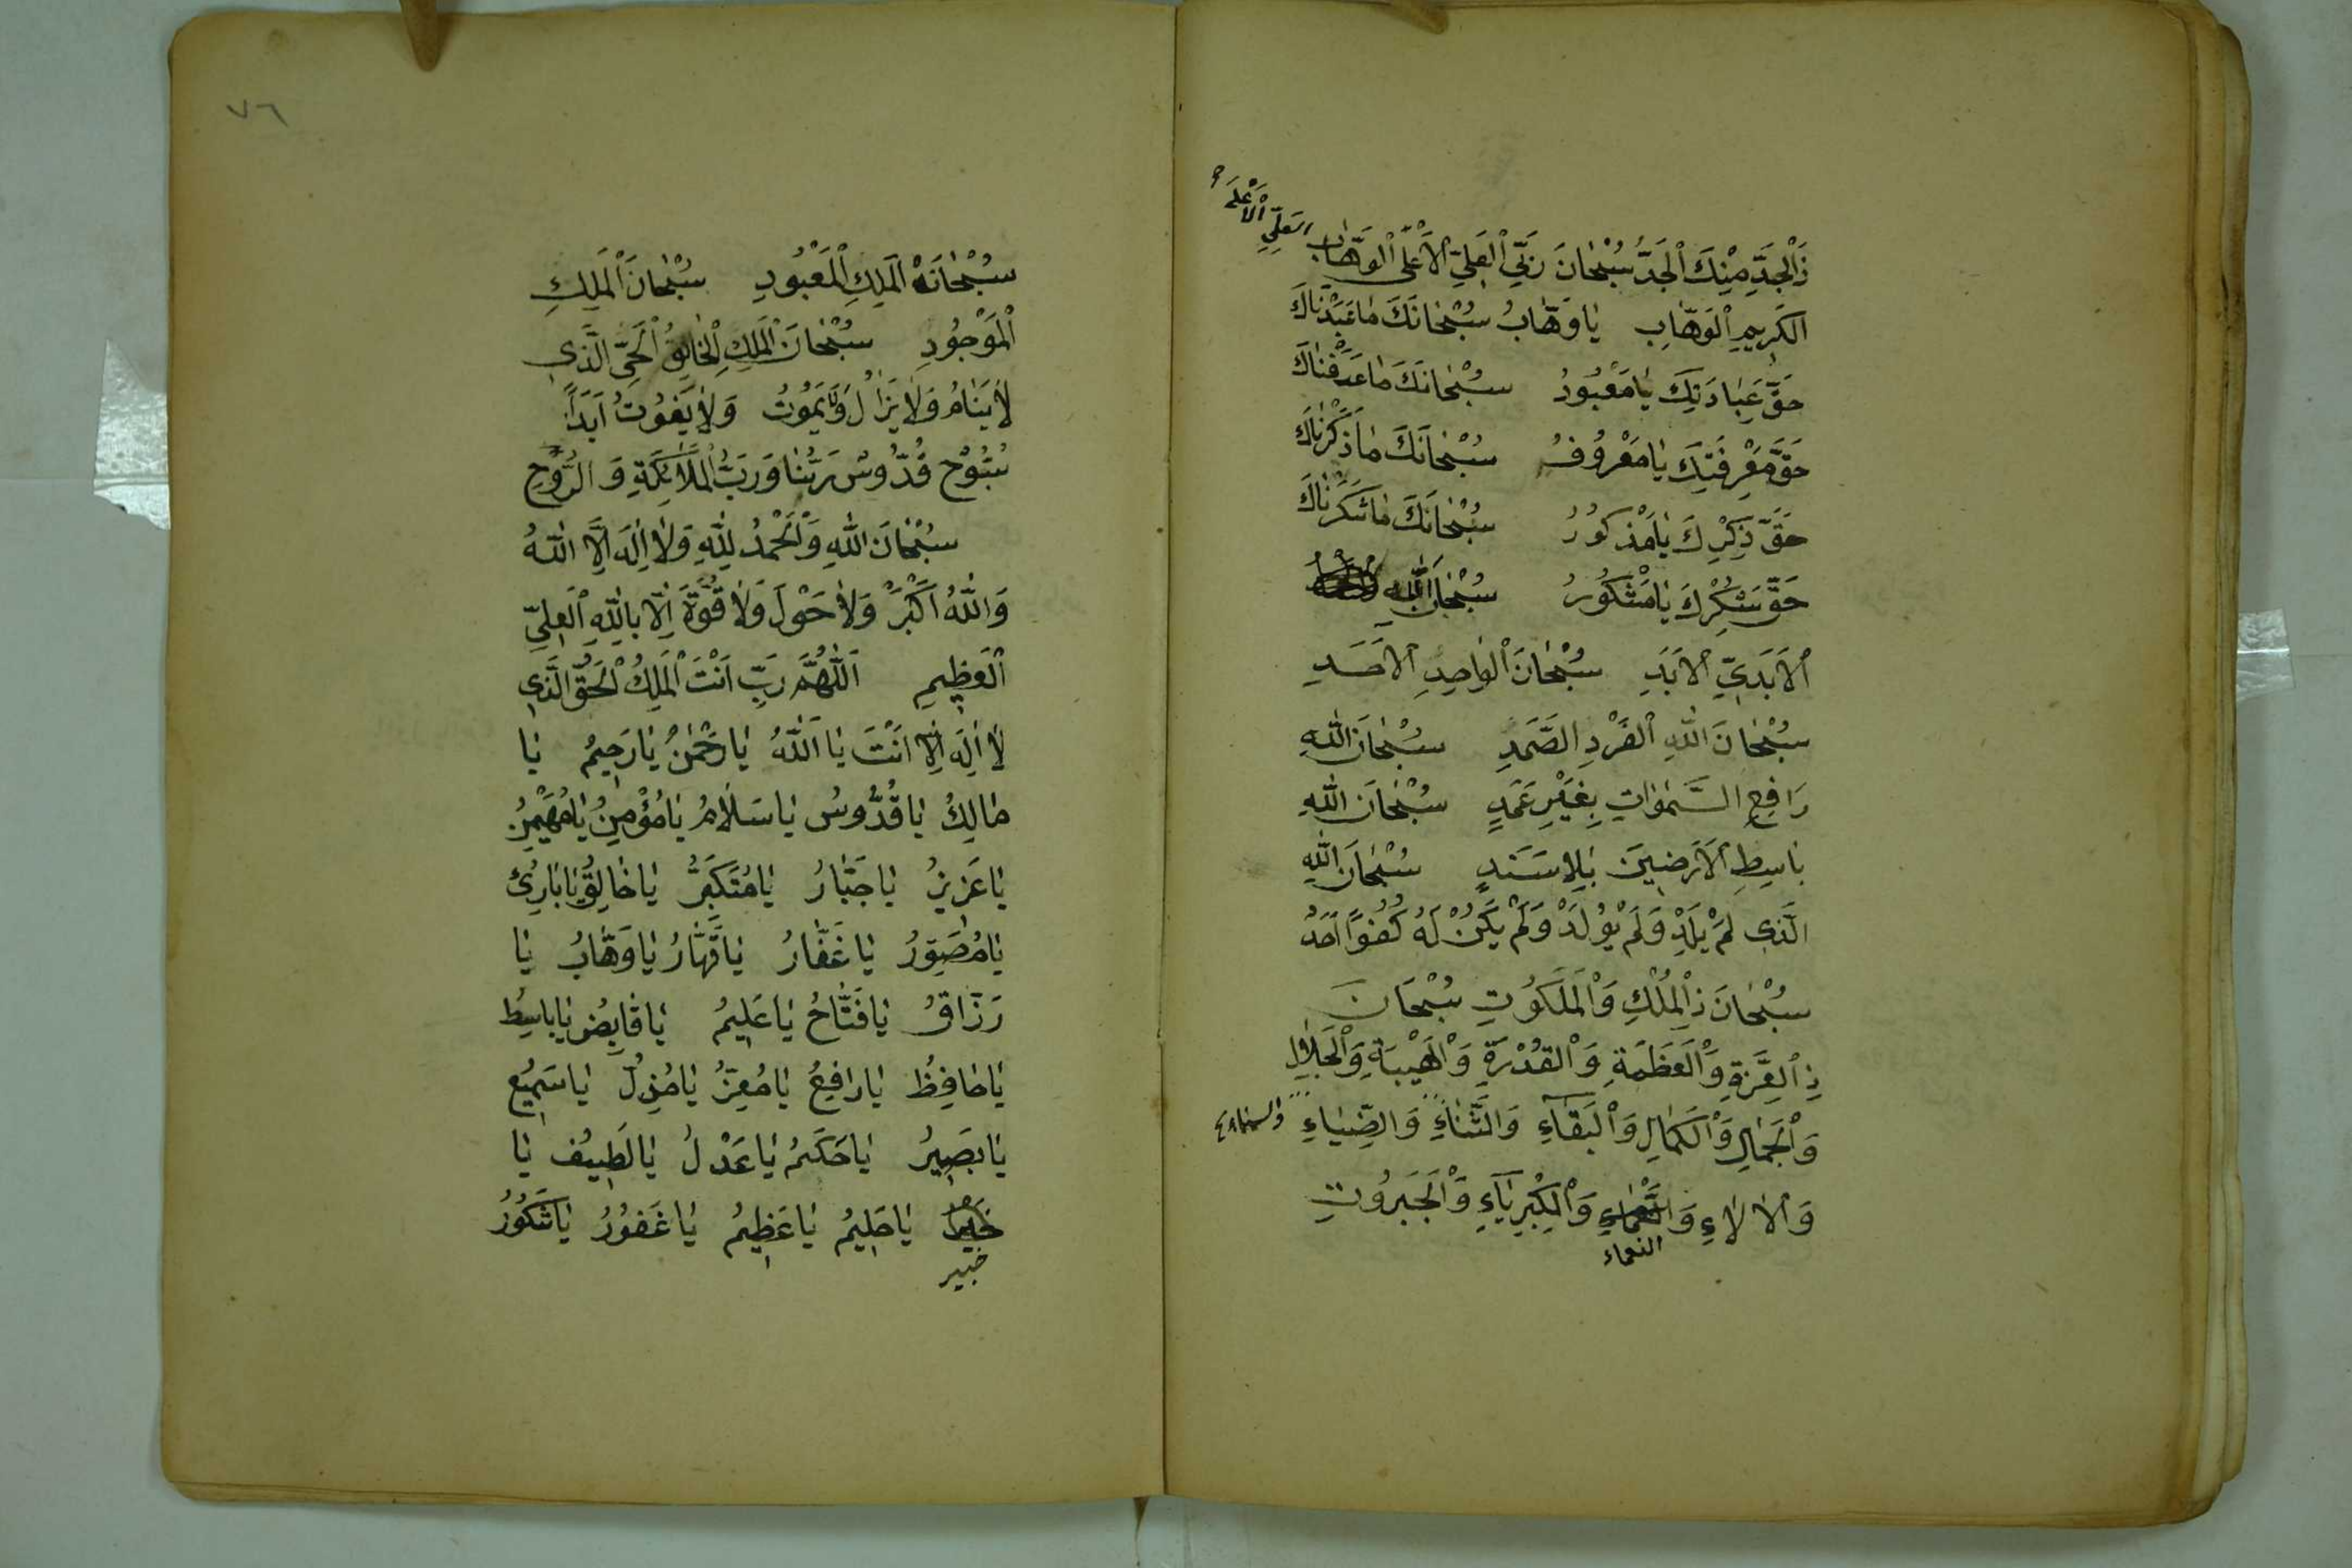 ذَالْجَدِّ مِنْكَ الْجَدُّ سُبْحَانَ رَبِّيَ الْعَلِيِّ الْاَعْلَى الْوَهَّابِ
العَلِيِّ الْاَعْلَى
الكَرِيمِ الْوَهَّابِ يَا وَهَّابُ سُبْحَانَكَ مَا عَبَدْنَاكَ
حَقَّ عِبَادَتِكَ يَا مَعْبُودُ سُبْحَانَكَ مَا عَرَفْنَاكَ
حَقَّ مَعْرِفَتِكَ يَا مَعْرُوفُ سُبْحَانَكَ مَا ذَكَرْنَاكَ
حَقَّ ذِكْرِكَ يَا مَذْكُورُ سُبْحَانَكَ مَا شَكَرْنَاكَ
حَقَّ شُكْرِكَ يَا مَشْكُورُ سُبْحَانَ اللّٰهِ
الْاَبَدِيِّ الْاَبَدِ سُبْحَانَ الْوَاحِدِ الْاَحَدِ
سُبْحَانَ اللّٰهِ الْفَرْدِ الصَّمَدِ سُبْحَانَ اللّٰهِ
رَافِعِ السَّمٰوَاتِ بِغَيْرِ عَمَدٍ سُبْحَانَ اللّٰهِ
بَاسِطِ الْاَرَضِينَ بِلَا سَنَدٍ سُبْحَانَ اللّٰهِ
الَّذِي لَمْ يَلِدْ وَلَمْ يُولَدْ وَلَمْ يَكُنْ لَهُ كُفُوًا اَحَدٌ
سُبْحَانَ ذِي الْمُلْكِ وَالْمَلَكُوتِ سُبْحَانَ
ذِي الْعِزَّةِ وَالْعَظَمَةِ وَالْقُدْرَةِ وَالْهَيْبَةِ وَالْجَلَالِ
وَالْجَمَالِ وَالْكَمَالِ وَالْبَقَآءِ وَالثَّنَاءِ وَالضِّيَاءِ
وَالْاٰلَاءِ وَالنَّعْمَاءِ وَالْكِبْرِيَآءِ وَالْجَبَرُوتِ
النعماء
٧٦
سُبْحَانَهُ الْمَلِكِ الْمَعْبُودِ سُبْحَانَ الْمَلِكِ
الْمَوْجُودِ سُبْحَانَ الْمَلِكِ الْخَالِقِ الْحَيِّ الَّذِي
لَا يَنَامُ وَلَا يَزَالُ وَلَا يَمُوتُ وَلَا يَفُوتُ اَبَدًا
سُبُّوحٌ قُدُّوسٌ رَبُّنَا وَرَبُّ الْمَلَآئِكَةِ وَالرُّوحِ
سُبْحَانَ اللّٰهِ وَالْحَمْدُ لِلّٰهِ وَلَا اِلٰهَ اِلَّا اللّٰهُ
وَاللّٰهُ اَكْبَرُ وَلَا حَوْلَ وَلَا قُوَّةَ اِلَّا بِاللّٰهِ الْعَلِيِّ
الْعَظِيمِ اَللّٰهُمَّ رَبِّ اَنْتَ الْمَلِكُ الْحَقُّ الَّذِي
لَا اِلٰهَ اِلَّا اَنْتَ يَا اَللّٰهُ يَا رَحْمٰنُ يَا رَحِيمُ يَا
مَالِكُ يَا قُدُّوسُ يَا سَلَامُ يَا مُؤْمِنُ يَا مُهَيْمِنُ
يَا عَزِيزُ يَا جَبَّارُ يَا مُتَكَبِّرُ يَا خَالِقُ يَا بَارِئُ
يَا مُصَوِّرُ يَا غَفَّارُ يَا قَهَّارُ يَا وَهَّابُ يَا
رَزَّاقُ يَا فَتَّاحُ يَا عَلِيمُ يَا قَابِضُ يَا بَاسِطُ
يَا حَافِظُ يَا رَافِعُ يَا مُعِزُّ يَا مُذِلُّ يَا سَمِيعُ
يَا بَصِيرُ يَا حَكَمُ يَا عَدْلُ يَا لَطِيفُ يَا
خَبِيرُ يَا حَلِيمُ يَا عَظِيمُ يَا غَفُورُ يَا شَكُورُ
خبير